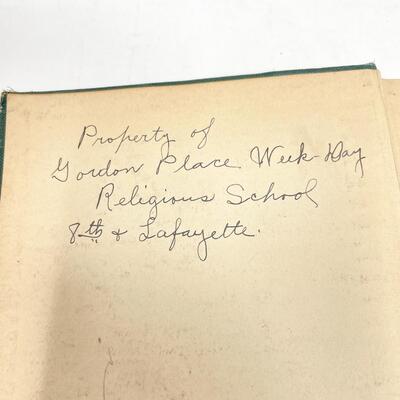 Property of
Gordon Place Week-Day
Religious School
8th & Lafayette.